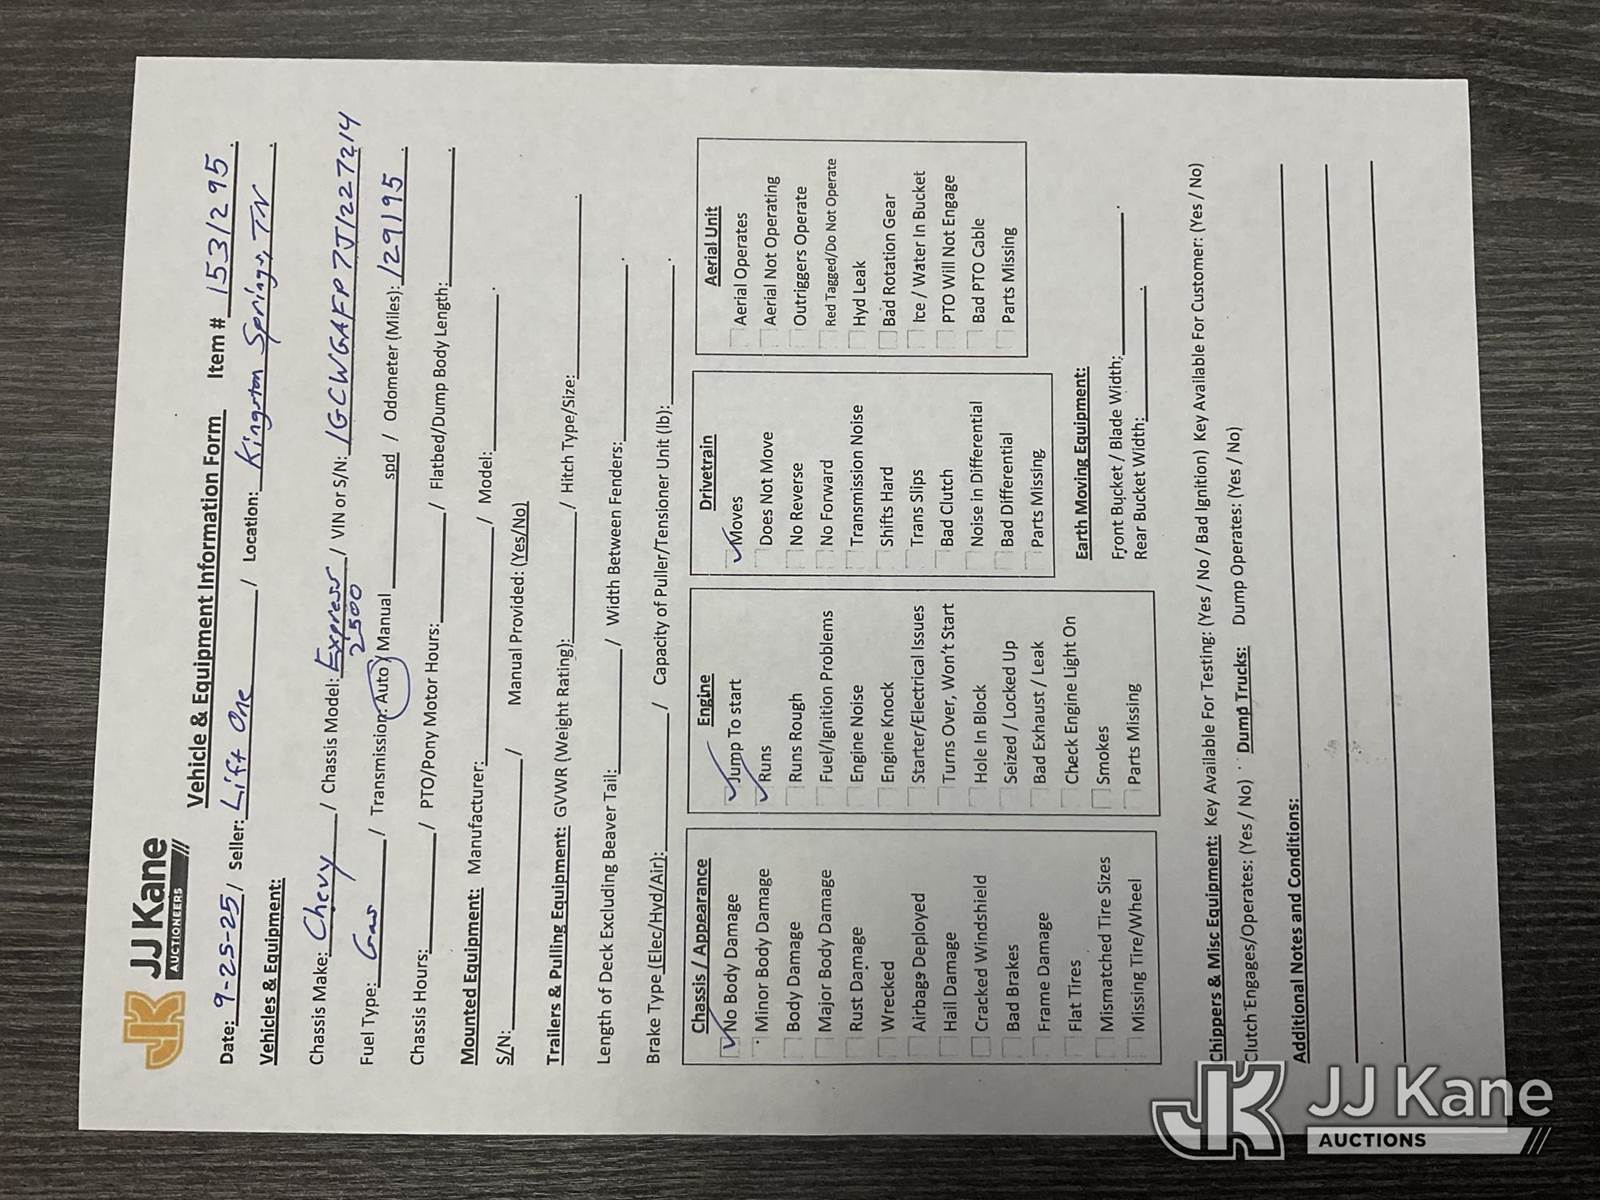 JJ Kane
AUCTIONEERS
Vehicle & Equipment Information Form Item # 1531295.
Date: 9-25-25/ Seller: Lift One / Location: Kingston Springs, TN.
Vehicles & Equipment:
Chassis Make: Chevy / Chassis Model: Express 2500 / VIN or S/N: 1GCWGAFP7J1227214
Fuel Type: Gas / Transmission: Auto / Manual spd / Odometer (Miles): 129195.
Chassis Hours: / PTO/Pony Motor Hours: / Flatbed/Dump Body Length: .
Mounted Equipment: Manufacturer: / Model: .
S/N: / Manual Provided: (Yes/No)
Trailers & Pulling Equipment: GVWR (Weight Rating): / Hitch Type/Size: .
Length of Deck Excluding Beaver Tail: / Width Between Fenders: .
Brake Type (Elec/Hyd/Air): / Capacity of Puller/Tensioner Unit (lb): .
Chassis / Appearance
✓ No Body Damage
Minor Body Damage
Body Damage
Major Body Damage
Rust Damage
Wrecked
Airbags Deployed
Hail Damage
Cracked Windshield
Bad Brakes
Frame Damage
Flat Tires
Mismatched Tire Sizes
Missing Tire/Wheel
Engine
✓ Jump To start
✓ Runs
Runs Rough
Fuel/Ignition Problems
Engine Noise
Engine Knock
Starter/Electrical Issues
Turns Over, Won't Start
Hole In Block
Seized / Locked Up
Bad Exhaust / Leak
Check Engine Light On
Smokes
Parts Missing
Drivetrain
✓ Moves
Does Not Move
No Reverse
No Forward
Transmission Noise
Shifts Hard
Trans Slips
Bad Clutch
Noise in Differential
Bad Differential
Parts Missing
Aerial Unit
Aerial Operates
Aerial Not Operating
Outriggers Operate
Red Tagged/Do Not Operate
Hyd Leak
Bad Rotation Gear
Ice / Water In Bucket
PTO Will Not Engage
Bad PTO Cable
Parts Missing
Earth Moving Equipment:
Front Bucket / Blade Width: .
Rear Bucket Width: .
Chippers & Misc Equipment: Key Available For Testing: (Yes / No / Bad Ignition) Key Available For Customer: (Yes / No)
Clutch Engages/Operates: (Yes / No) Dump Trucks: Dump Operates: (Yes / No)
Additional Notes and Conditions:
JJ Kane
AUCTIONS